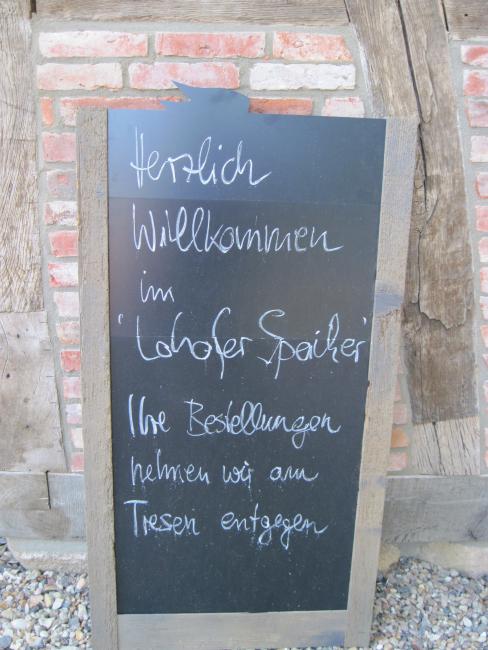 Herzlich
Willkommen
im
'Lohofer Speicher'
Ihre Bestellungen
nehmen wir am
Tresen entgegen